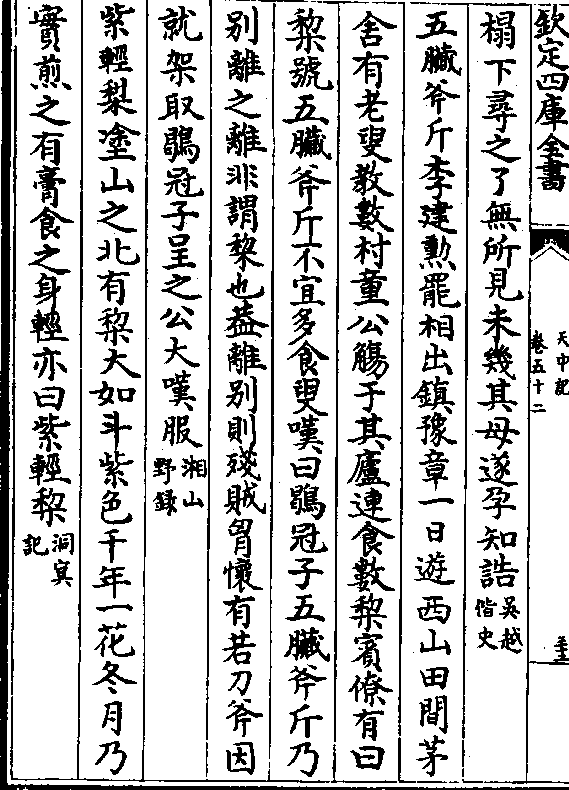 欽定四庫全書
天中記
卷五十二
榻下尋之了無所見未幾其母遂孕知誥吳越
備史
五臟斧斤李建勲罷相出鎮豫章一日遊西山田間茅
舍有老叟教數村童公觴于其廬連食數棃賓僚有曰
棃號五臟斧斤不宜多食叟嘆曰鶡冠子五臟斧斤乃
别離之離非謂棃也葢離别則殘賊胷懷有若刀斧因
就架取鶡冠子呈之公大嘆服湘山
野錄
紫輕梨塗山之北有棃大如斗紫色千年一花冬月乃
實煎之有膏食之身輕亦曰紫輕棃洞㝠
記